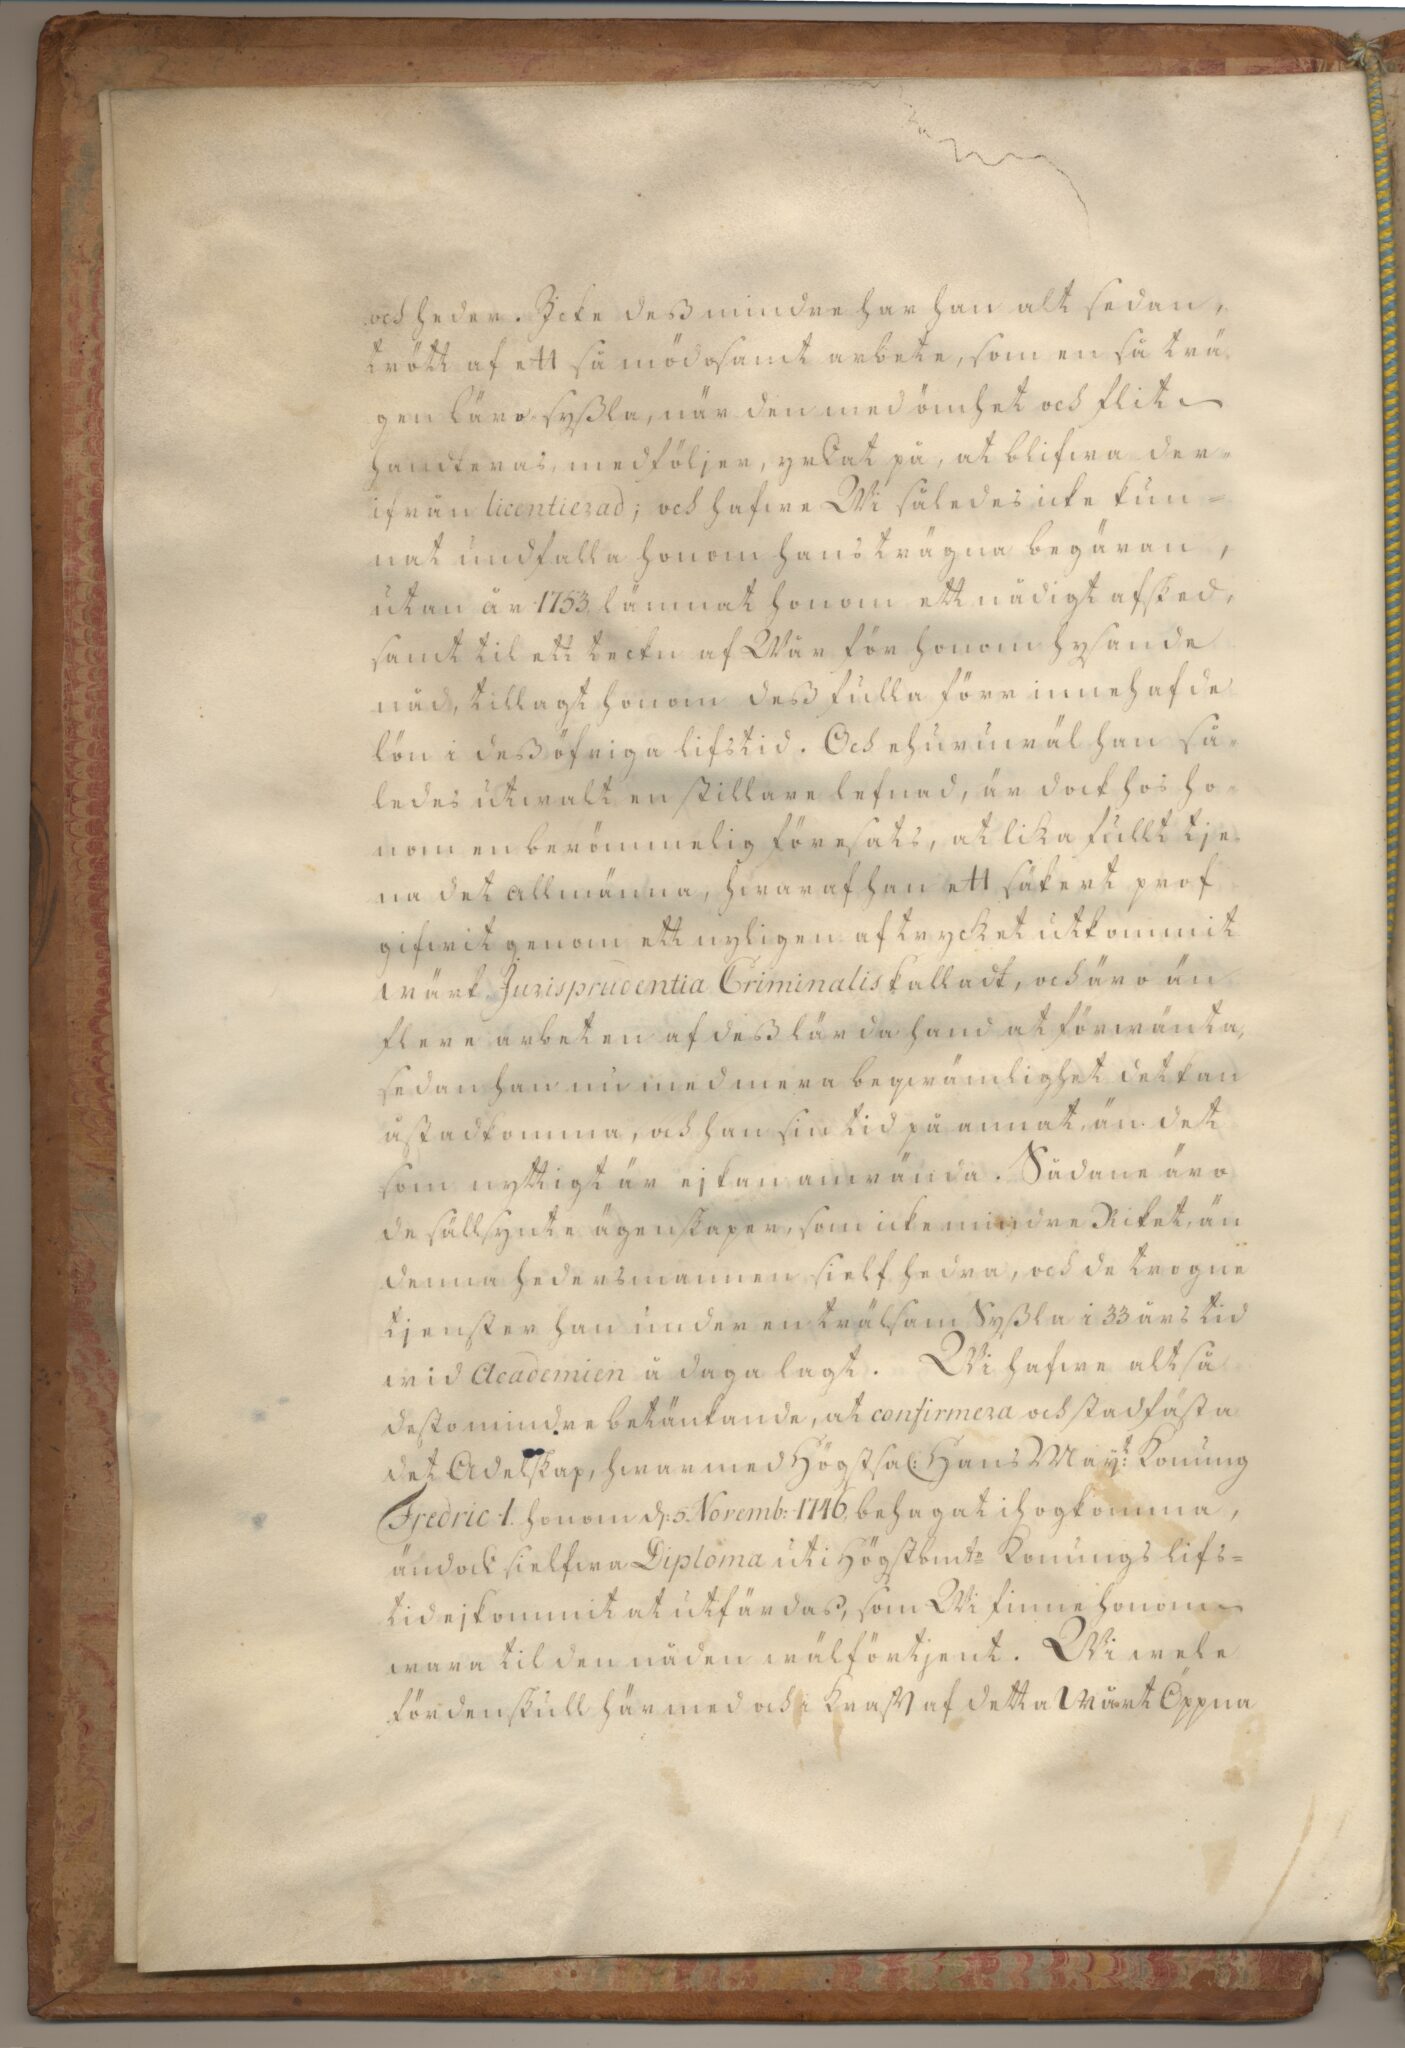 och heder. Icke deß mindre har han alt sedan,
trött af ett så mödosamt arbete, som en så trä
gen läro-syßla, när den med ömhet och flit
handteras, medföljer, yrkat på, at blifwa der-
ifrån licentierad; och hafwe Wi således icke kun=
nat undfalla honom hans trägna begäran,
utan år 1753. lämnat honom ett nådigt afsked,
samt til ett teckn af Wår för honom hysande
nåd, tillagt honom deß fulla förr innehafde
lön i deß öfriga lifstid. Och ehuruwäl han så-
ledes utwalt en stillare lefnad, är dock hos ho-
nom en berömmelig föresats, at lika fullt tje-
na det allmänna, hwaraf han ett säkert prof
gifwit genom ett nyligen af trycket utkommit
wärk Jurisprudentia Criminalis kalladt, och äro än
flere arbeten af deß lärda hand at förwänta,
sedan han nu med mera beqwämlighet det kan
åstadkomma, och han sin tid på annat, än det
som nyttigt är ej kan anwända. Sådane äro
de sällsynte ägenskaper, som icke mindre Riket, än
denna hedersmannen sielf hedra, och de trogne
tjenster han under en trälsam Syßla i 33 års tid
wid Academien å daga lagt. Wi hafwe altså
desto mindre betänkande, at confirmera och stadfästa
det Adelskap, hwarmed Högstsal: Hans Mayt: Konung
Fredric 1. honom d: 5 Novemb: 1746, behagat ihogkomma,
ändock sielfwa Diploma uti Högstbmte Konungs lifs=
tid ej kommit at utfärdas, som Wi finne honom
wara til den nåden wälförtjent. Wi wele
fördenskull härmed och i kraft af detta Wårt Öppna